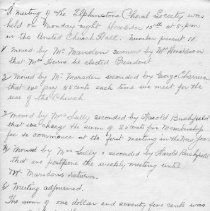 A meeting of the Elphinstone Choral Society was
held on Monday night November 15th at 8 p.m.
in the United Church Hall. Number present 15.
1 Moved by Mr. Marsden seconded by Mr. Henderson
that Mr. be elected President
2 Moved by Mr. Marsden seconded by
that we pay 25 cents each time we meet for the
use of the Church.
3 Moved by Mrs. Sully seconded by Harold
that we charge the sum of 25 cents for Membership
fee to commence at the first meeting in the New Year
4 Moved by Mrs. Sully seconded by Harold
that we postpone the weekly meeting until
Mr. Marsdens return.
Meeting adjourned.
The sum of one dollar and seventy five cents was